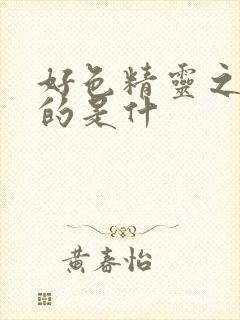 好色精靈之
的是什
黃春怡